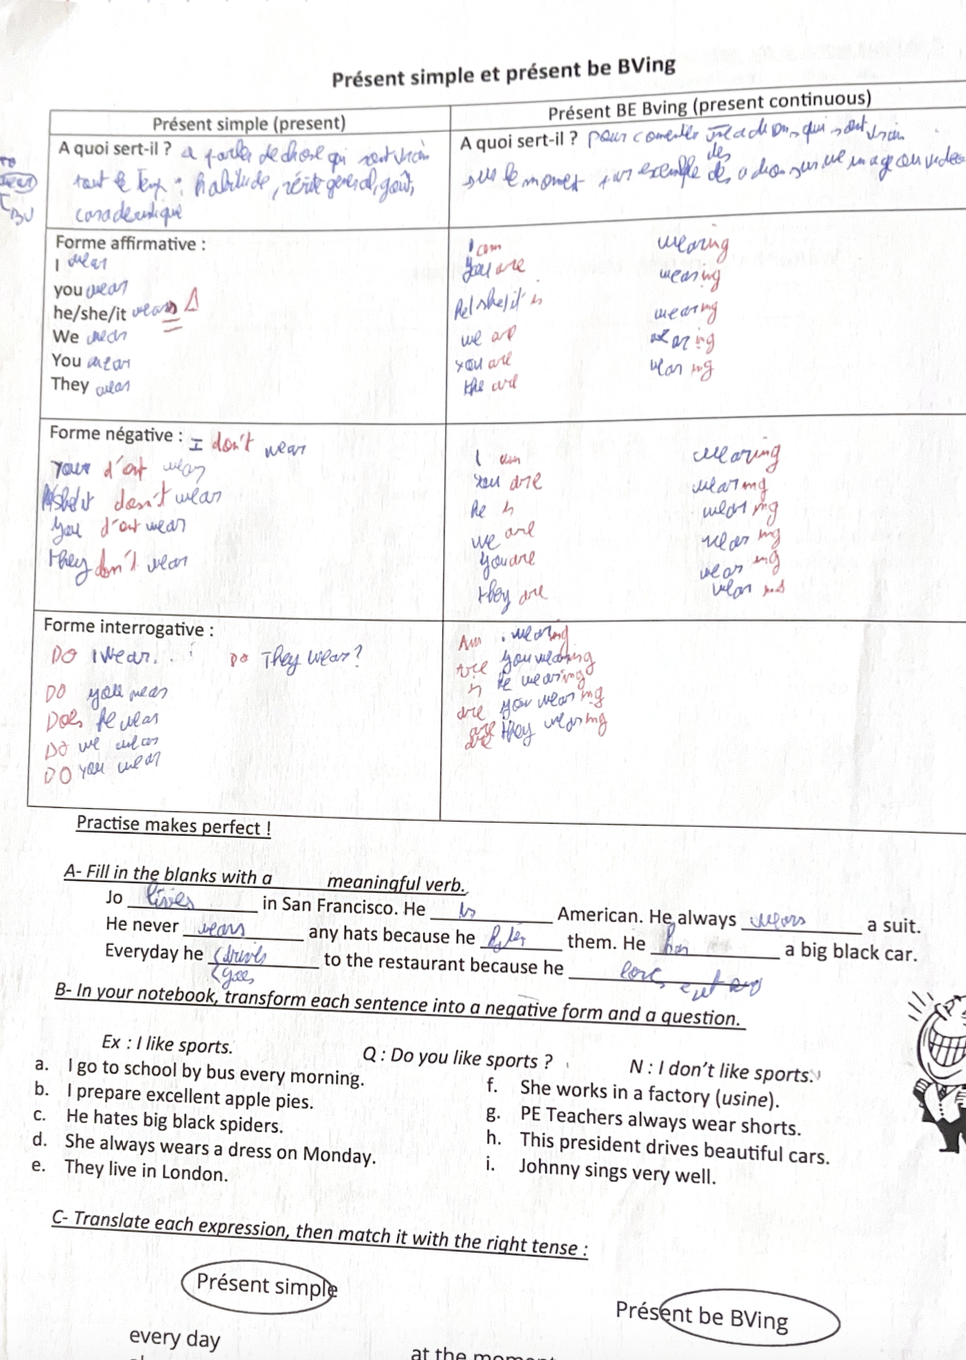 Présent simple et présent be BVing
Présent simple (present)
Présent BE Bving (present continuous)
A quoi sert-il ? a parler de chose qui sont vrai
tout le temps : habitude, vérité general, goût,
caracteristique
A quoi sert-il ? pour comenter des actions qui sont vrai
sur le moment par exemple des action sur une image ou video
Forme affirmative :
I wear
you wear
he/she/it wears
We wear
You wear
They wear
I am wearing
you are wearing
he/she/it is wearing
we are wearing
you are wearing
the are wearing
Forme négative : I don't wear
d'ont wear
doesn't wear
you d'ont wear
they don't wear
I am wearing
you are wearing
he is wearing
we are wearing
you are wearing
they are wearing
Forme interrogative :
DO I wear...? Do They wear?
DO you wear
Does he wear
DO we wear
DO you wear
Am i wearing
are you wearing
is he wearing
are you wearing
are they wearing
Practise makes perfect !
A- Fill in the blanks with a meaningful verb.
Jo lives in San Francisco. He is American. He always wears a suit.
He never wears any hats because he them. He has a big black car.
Everyday he drives to the restaurant because he
goes
B- In your notebook, transform each sentence into a negative form and a question.
Ex : I like sports. Q : Do you like sports ? N : I don't like sports.
a. I go to school by bus every morning.
b. I prepare excellent apple pies.
c. He hates big black spiders.
d. She always wears a dress on Monday.
e. They live in London.
f. She works in a factory (usine).
g. PE Teachers always wear shorts.
h. This president drives beautiful cars.
i. Johnny sings very well.
C- Translate each expression, then match it with the right tense :
Présent simple
Présent be BVing
every day
at the moment